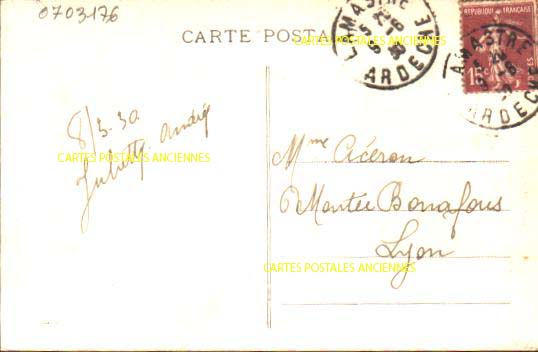 0703176
CARTE POSTALE
CARTES POSTALES ANCIENNES
LAMASTRE
ARDECHE
REPUBLIQUE FRANÇAISE
15c
LAMASTRE
ARDECHE
8/3-30
CARTES POSTALES ANCIENNES
Juliette André
Mme Cicéron
6 Montée Bonafous
Lyon
CARTES POSTALES ANCIENNES